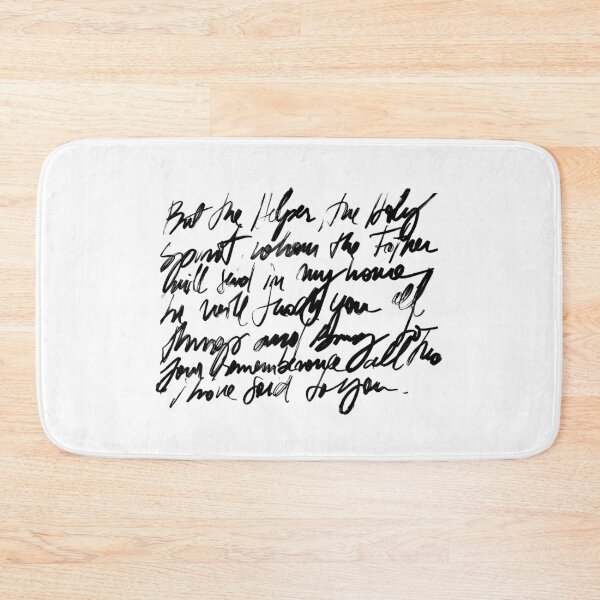 But the Helper, the Holy
Spirit, whom the Father
will send in my name,
he will teach you all
things and bring to
your remembrance all that
I have said to you.